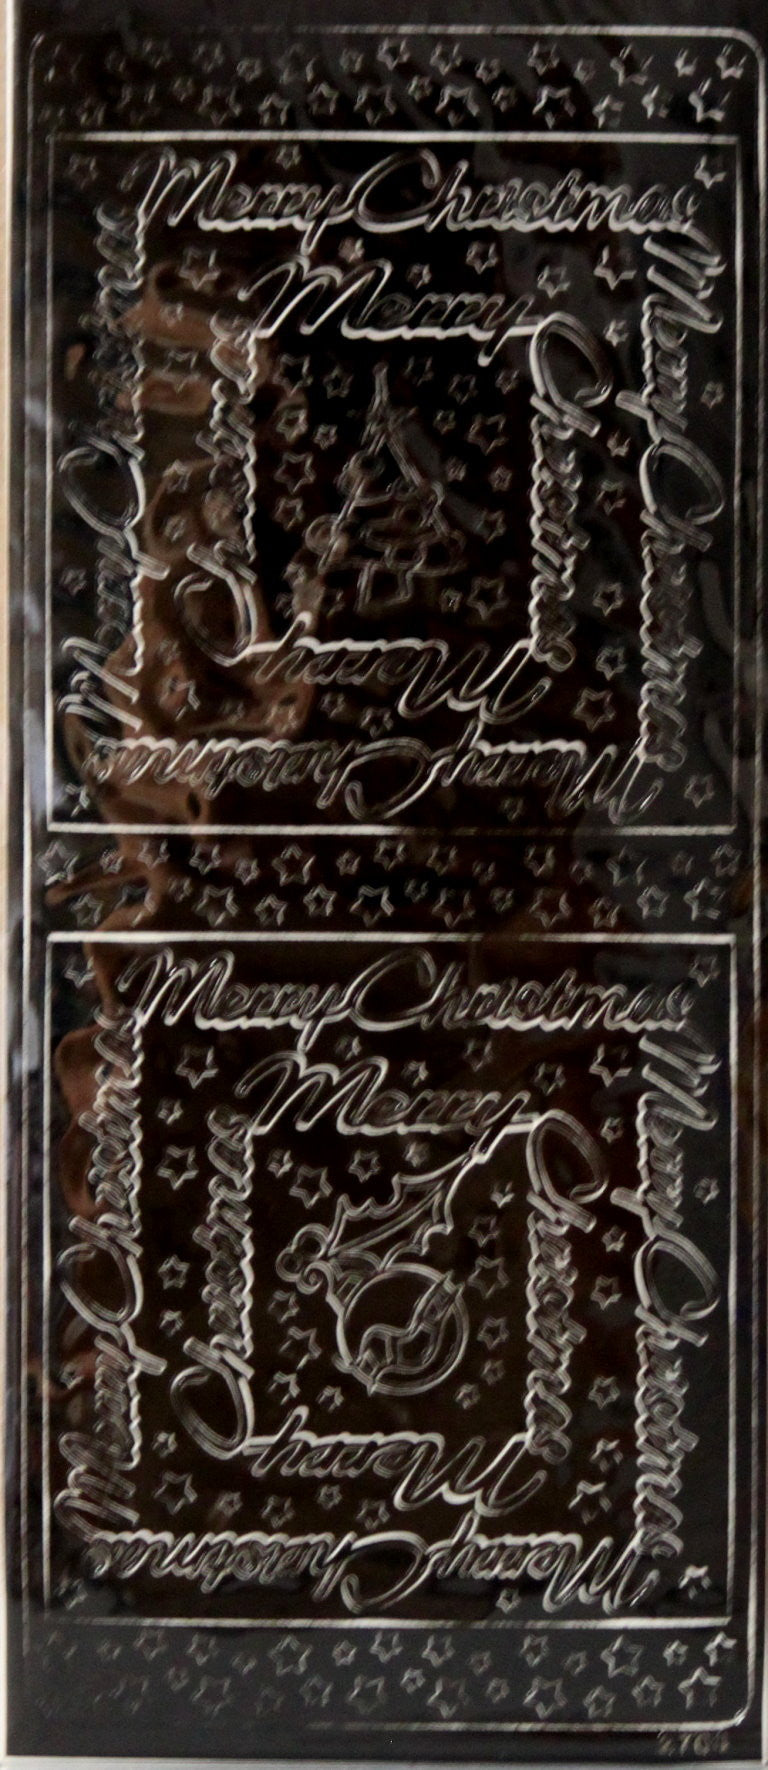 Merry Christmas
Merry Christmas
Merry Christmas
Merry Christmas
Merry
Christmas
Merry
Christmas
Merry Christmas
Merry Christmas
Merry Christmas
Merry Christmas
Merry
Christmas
Merry
Christmas